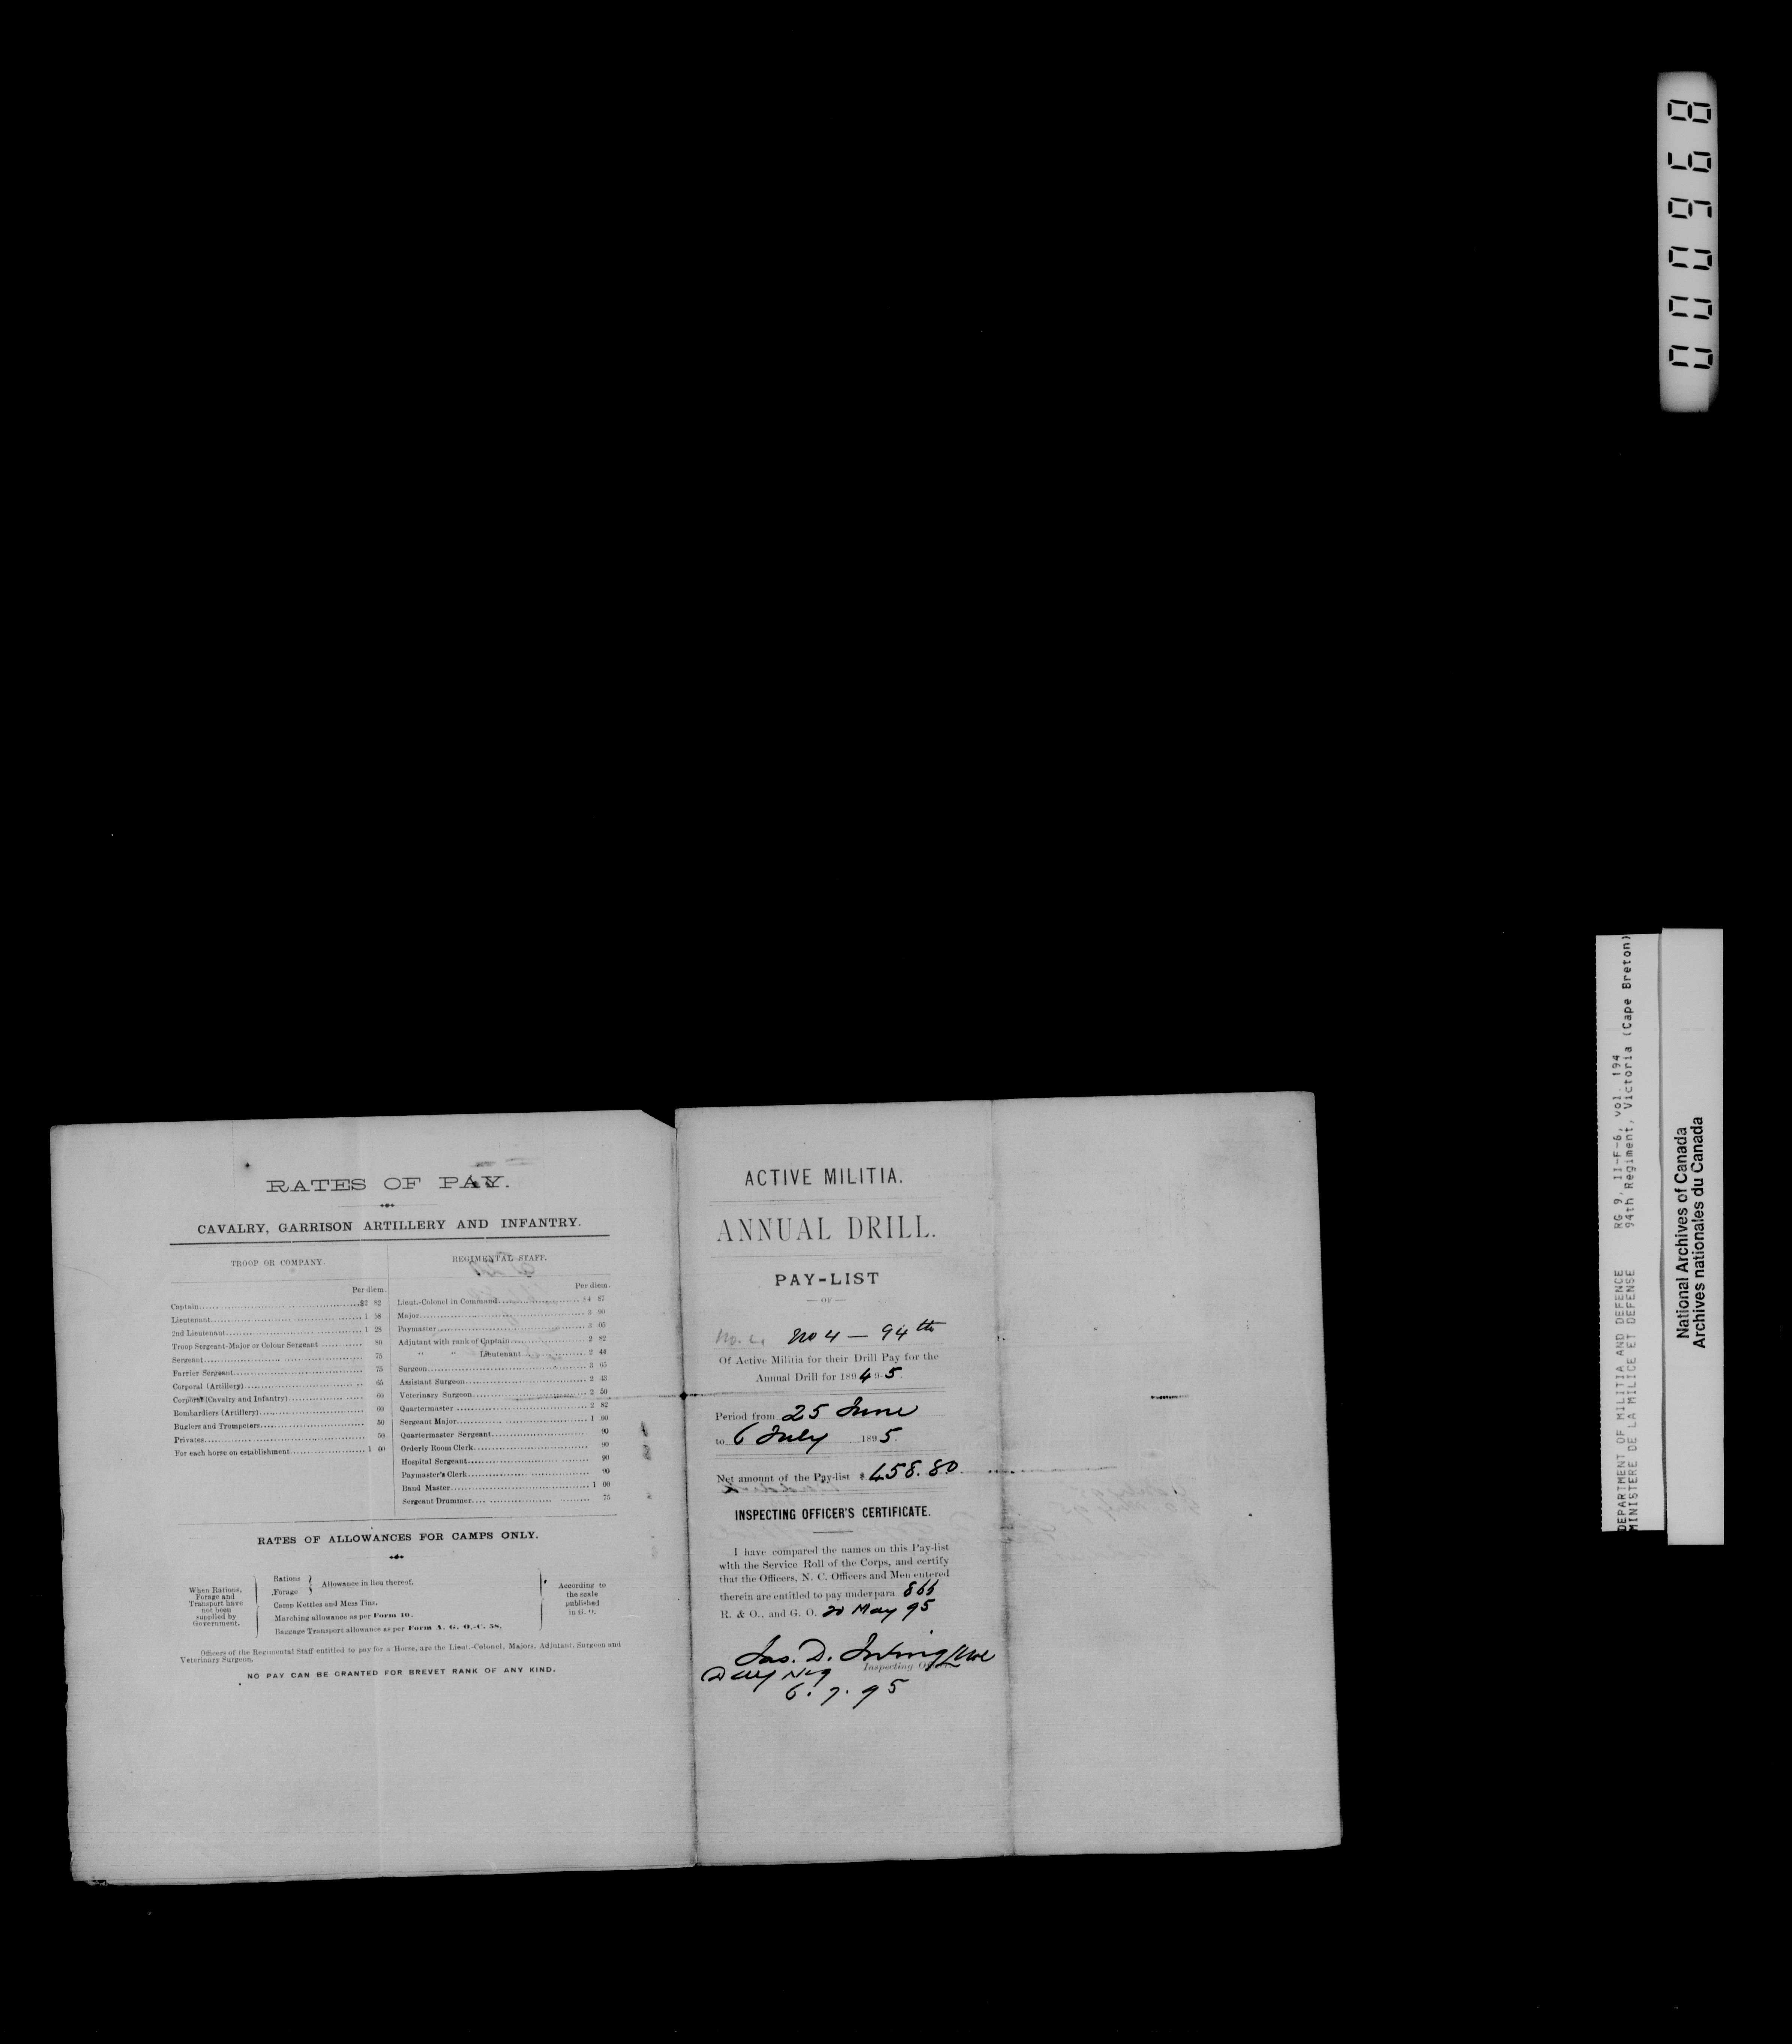 RATES OF PAY.
CAVALRY, GARRISON ARTILLERY AND INFANTRY.
TROOP OR COMPANY.
Per diem.
Captain $2 82
Lieutenant 1 58
2nd Lieutenant 1 28
Troop Sergeant-Major or Colour Sergeant 80
Sergeant 75
Farrier Sergeant 75
Corporal (Artillery) 65
Corporal (Cavalry and Infantry) 60
Bombardiers (Artillery) 60
Buglers and Trumpeters 50
Privates 50
For each horse on establishment 1 00
REGIMENTAL STAFF.
Per diem.
Lieut.-Colonel in Command $4 87
Major 3 90
Paymaster 3 05
Adjutant with rank of Captain 2 82
" " Lieutenant 2 44
Surgeon 3 65
Assistant Surgeon 2 43
Veterinary Surgeon 2 50
Quartermaster 2 82
Sergeant Major 1 00
Quartermaster Sergeant 90
Orderly Room Clerk 90
Hospital Sergeant 90
Paymaster's Clerk 90
Band Master 1 00
Sergeant Drummer 75
RATES OF ALLOWANCES FOR CAMPS ONLY.
When Rations, Forage and Transport have not been supplied by Government.
Rations
Forage
Allowance in lieu thereof.
Camp Kettles and Mess Tins.
Marching allowance as per Form 10.
Baggage Transport allowance as per Form A. G. O.-C. 58.
According to the scale published in G. O.
Officers of the Regimental Staff entitled to pay for a Horse, are the Lieut.-Colonel, Majors, Adjutant, Surgeon and
Veterinary Surgeon.
NO PAY CAN BE GRANTED FOR BREVET RANK OF ANY KIND.
ACTIVE MILITIA.
ANNUAL DRILL.
PAY-LIST
— OF —
No 4 — 94th
Of Active Militia for their Drill Pay for the
Annual Drill for 1894 9-5.
Period from 25 June
to 6 July 1895.
Net amount of the Pay-list $ 458.80
INSPECTING OFFICER'S CERTIFICATE.
I have compared the names on this Pay-list
with the Service Roll of the Corps, and certify
that the Officers, N. C. Officers and Men entered
therein are entitled to pay under para 866
R. & O., and G. O. 20 May 95
Jas. D. Irving
Inspecting Officer.
6. 7. 95
DEPARTMENT OF MILITIA AND DEFENCE RG 9, II-F-6, vol. 194
MINISTERE DE LA MILICE ET DEFENSE 94th Regiment, Victoria (Cape Breton)
National Archives of Canada
Archives nationales du Canada